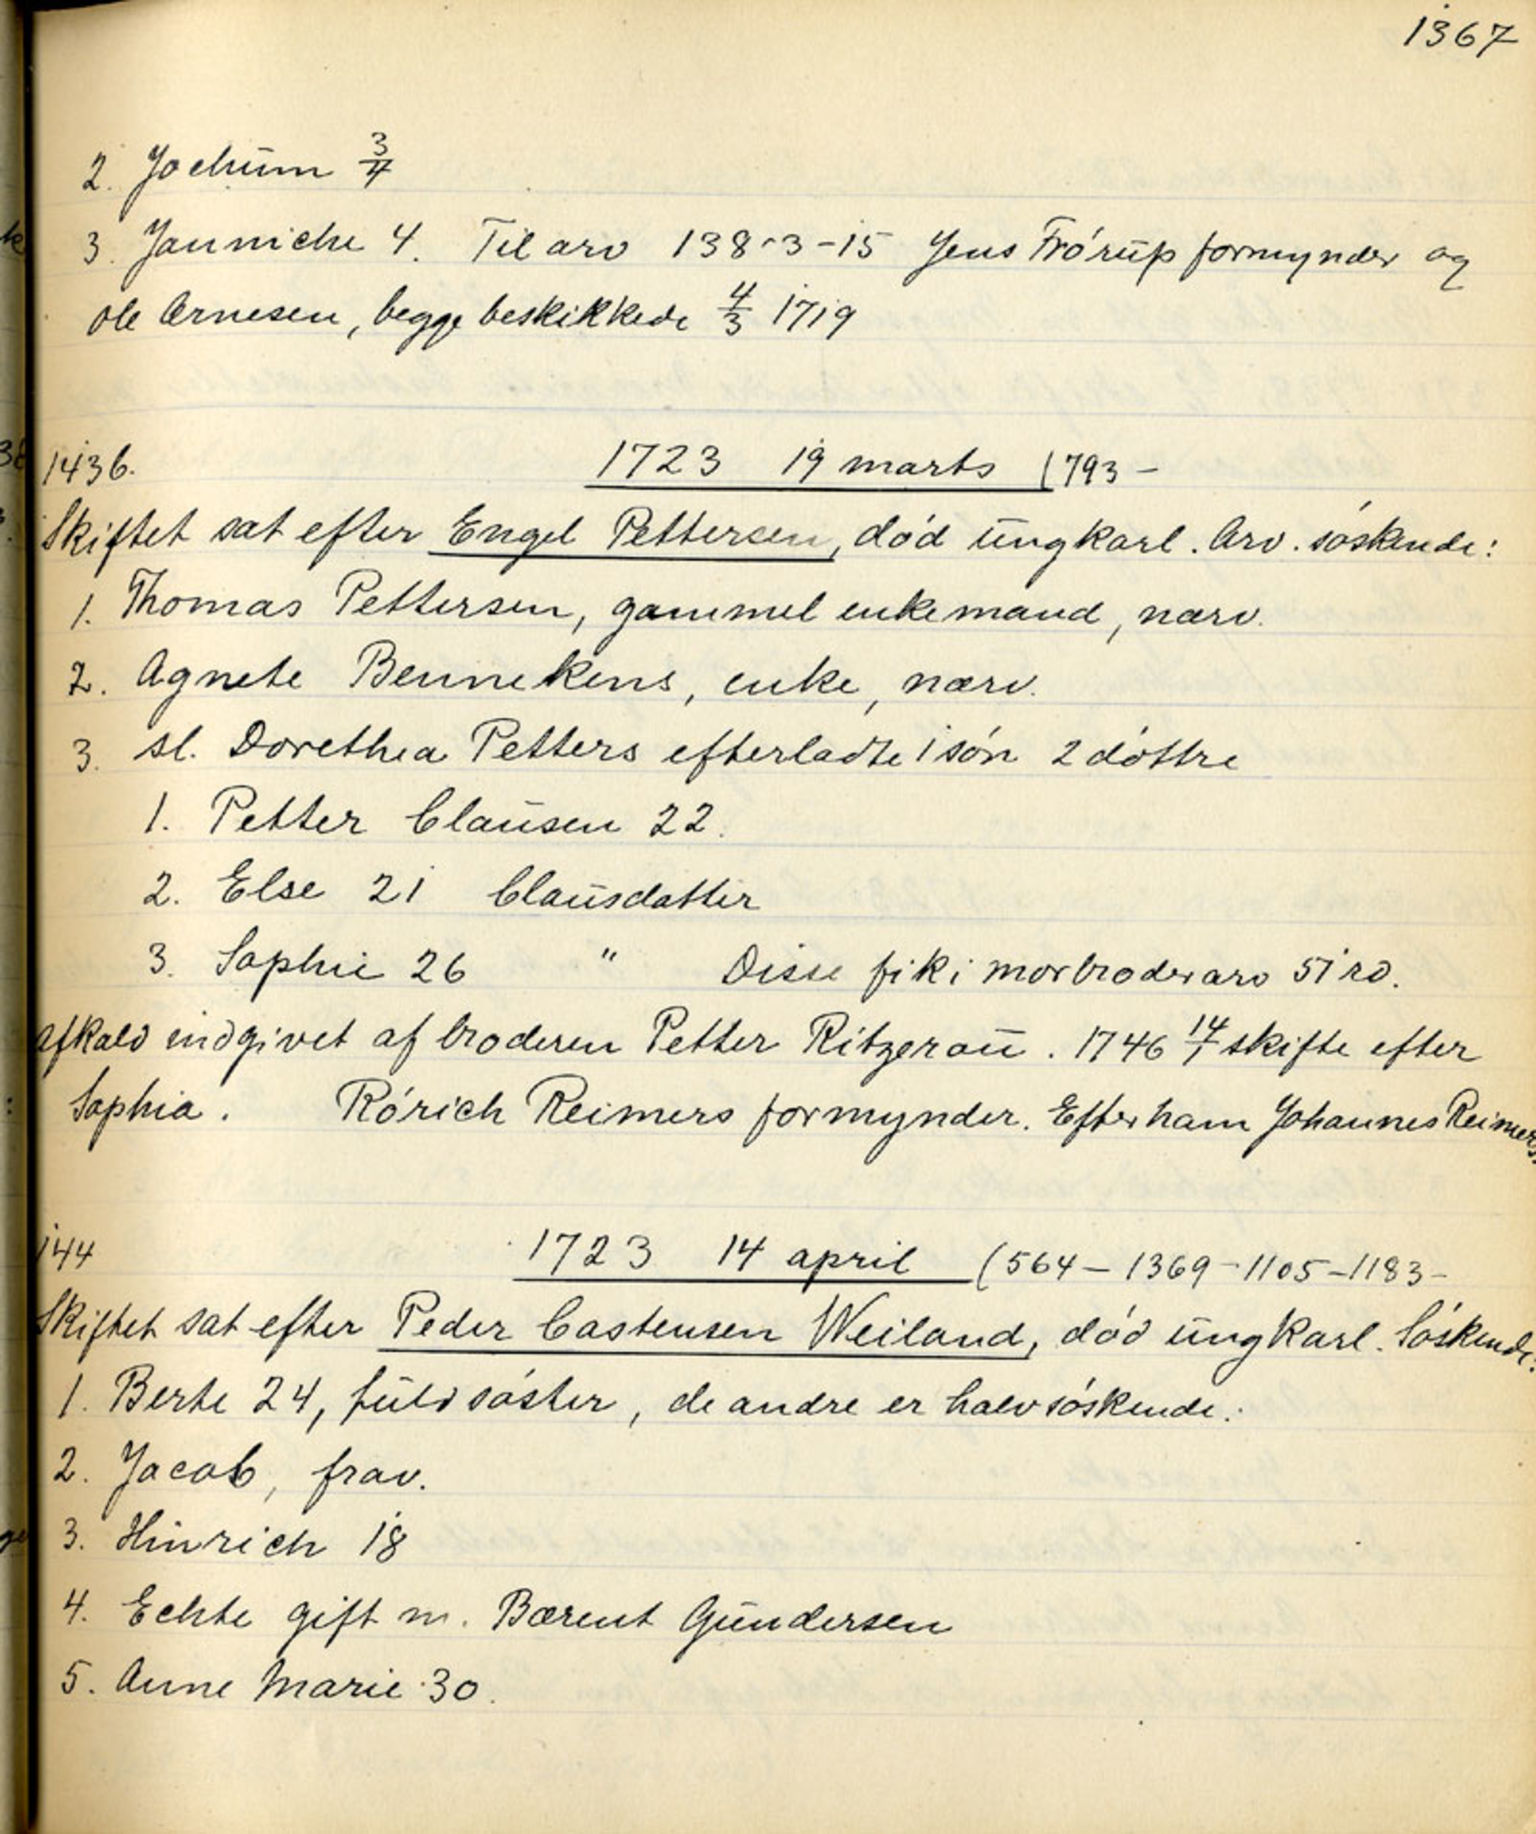 1367
2. Jochum 3/4
3. Janniche 4. Til arv 138-3-15 Jens Frórup formynder og
Ole Arnesen, begge beskikkede 4/3 1719
1436.
1723 19 marts (793 -
Skiftet sat efter Engel Pettersen, død ungkarl. Arv. søskende:
1. Thomas Pettersen, gammel enkemand, nærv.
2. Agnete Bennekens, enke, nærv.
3. sl. Dorethea Petters efterladte 1 søn 2 døttre
1. Petter Clausen 22.
2. Else 21 Clausdatter
3. Sophie 26 " Disse fik i morbroderarv 51 rd.
Afkald indgivet af broderen Petter Ritzerau. 1746 14/1 skifte efter
Sophia. Rórich Reimers formynder. Efter ham Johannes Reimers.
144
1723 14 april (564 - 1369 - 1105 - 1183 -
Skiftet sat efter Peder Castensen Weiland, død ungkarl. Søskende:
1. Berte 24, fuld søster, de andre er halvsøskende:
2. Jacob, frav.
3. Hinrich 18
4. Echte gift m. Bærent Gundersen
5. Anne Marie 30.